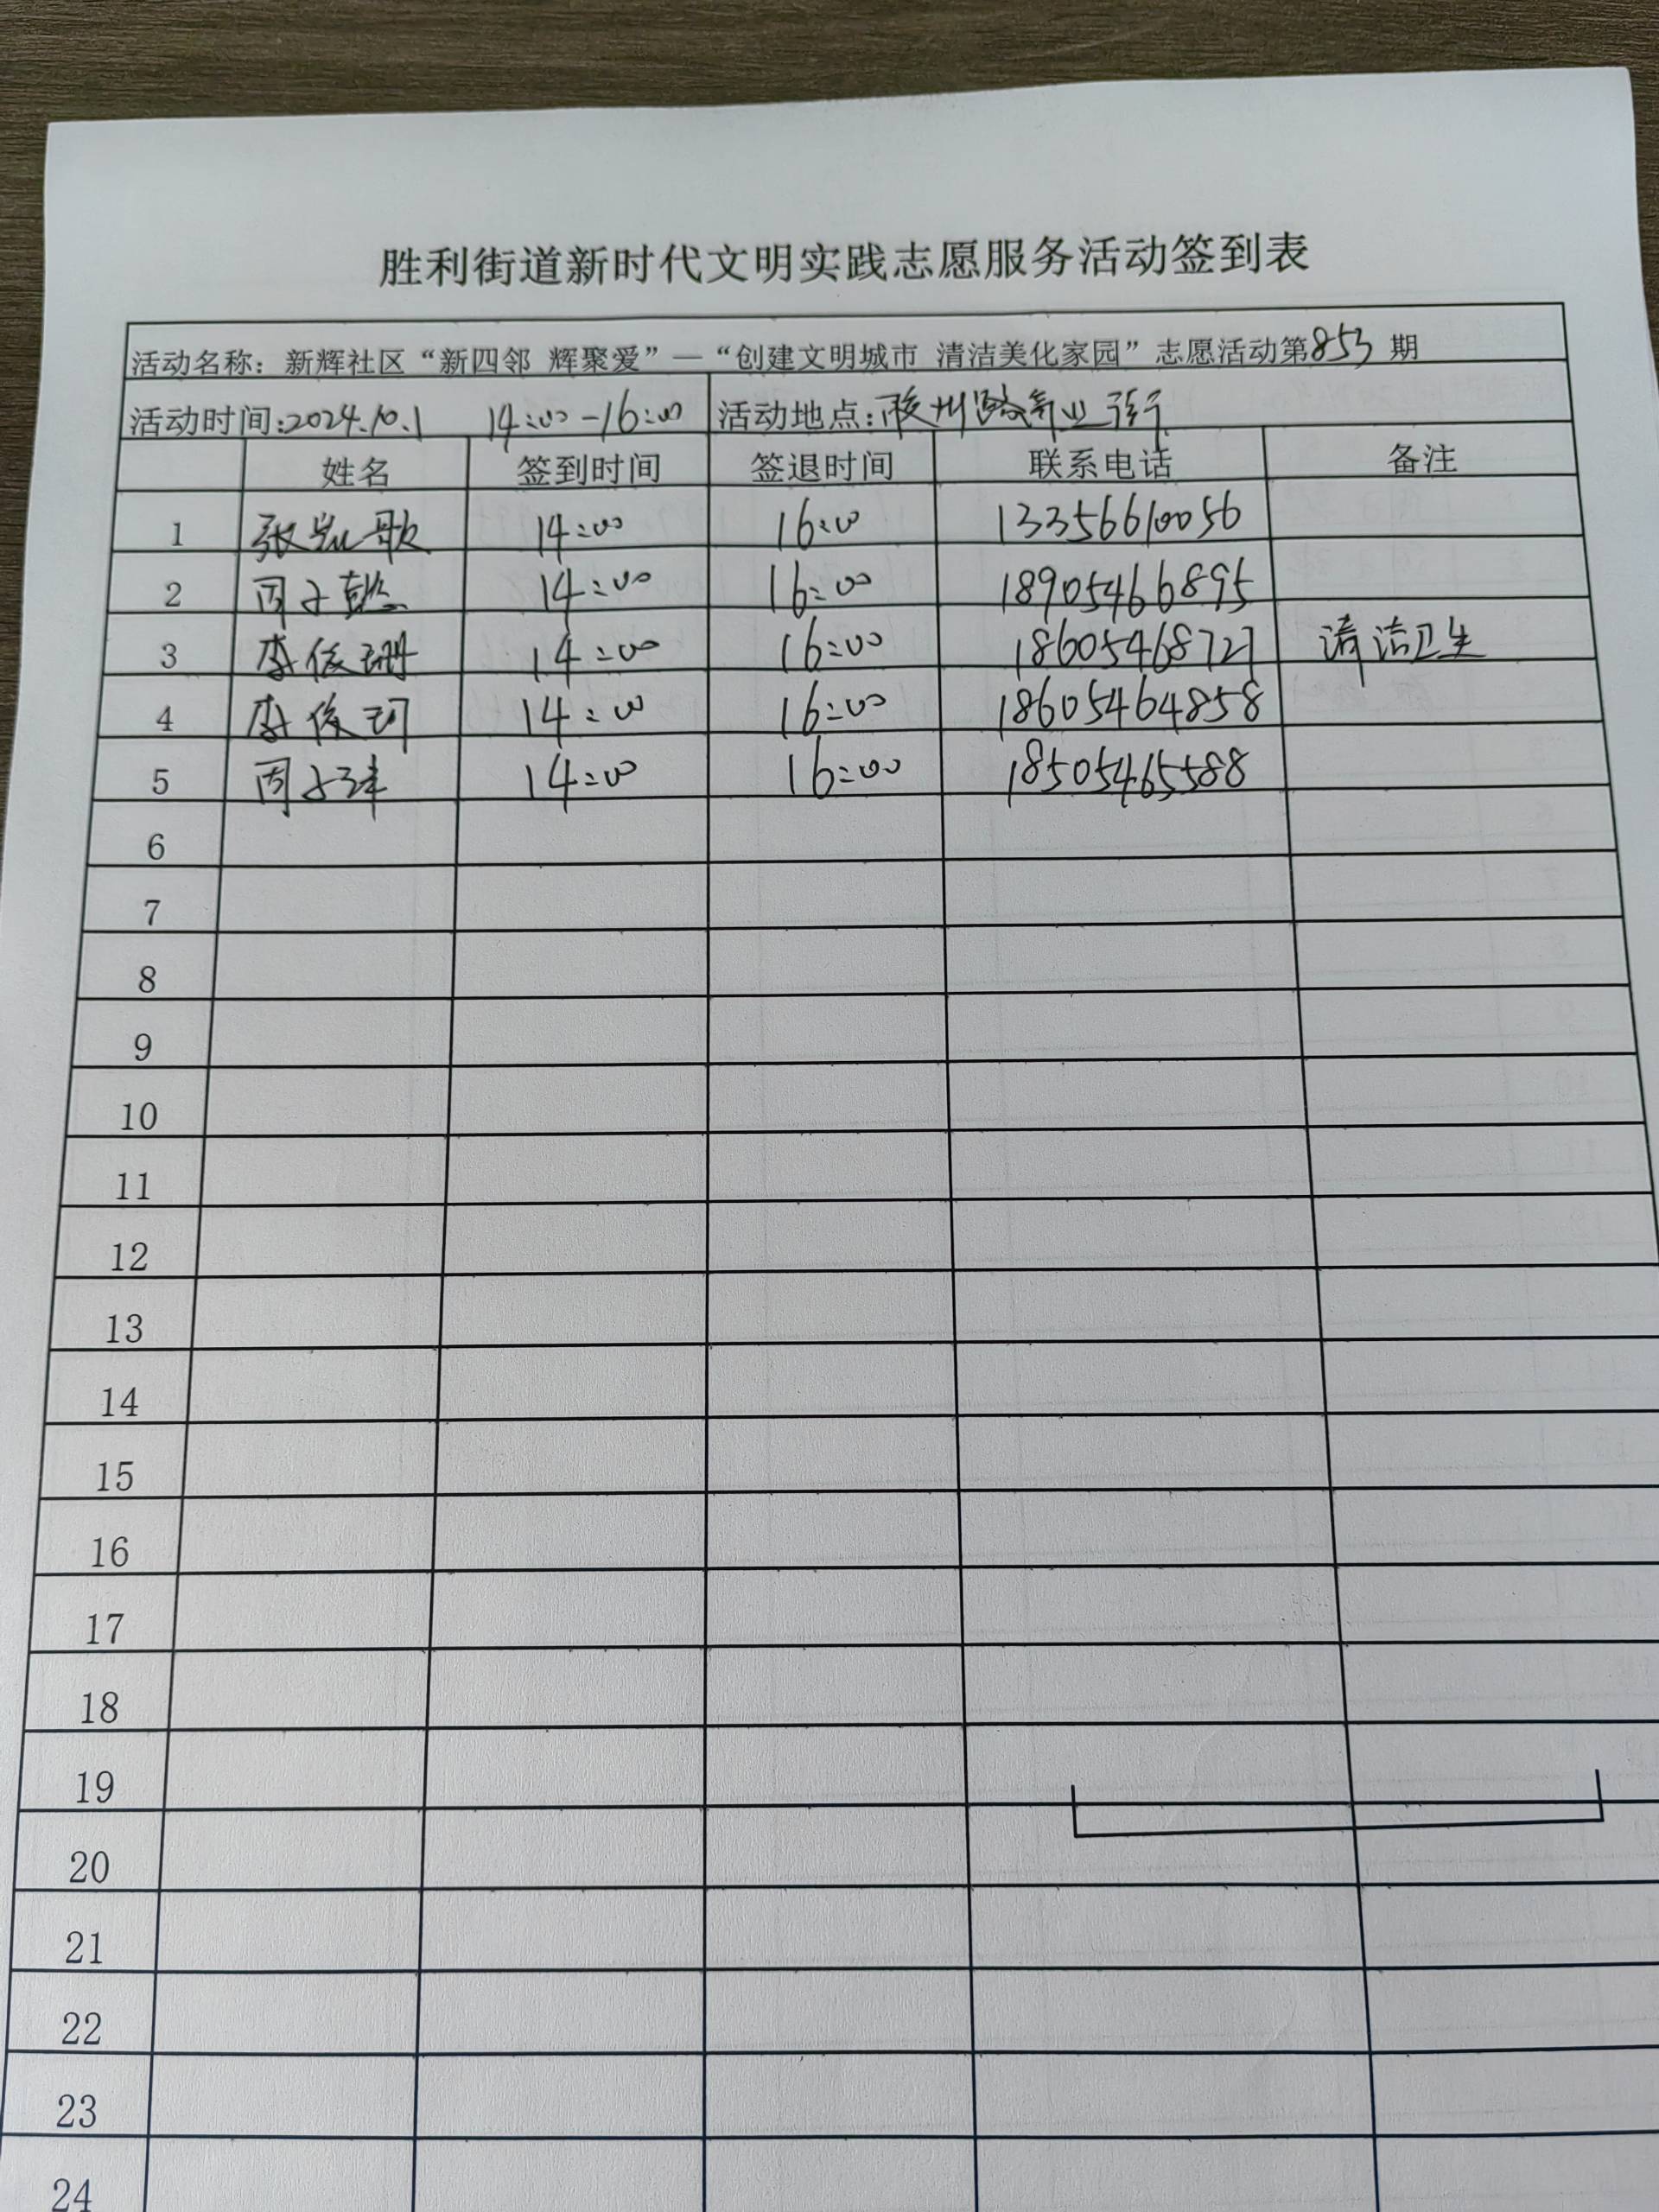 胜利街道新时代文明实践志愿服务活动签到表
活动名称：新辉社区“新四邻 辉聚爱”—“创建文明城市 清洁美化家园”志愿活动第853期
活动时间：2024.10.1 14:00-16:00 活动地点：胶州路商业街
姓名 签到时间 签退时间 联系电话 备注
1 张凯歌 14:00 16:00 13356610056
2 周子懿 14:00 16:00 18905466895
3 李俊珊 14:00 16:00 18605468727 清洁卫生
4 李俊珂 14:00 16:00 18605464858
5 周子 14:00 16:00 18505465588
6
7
8
9
10
11
12
13
14
15
16
17
18
19
20
21
22
23
24